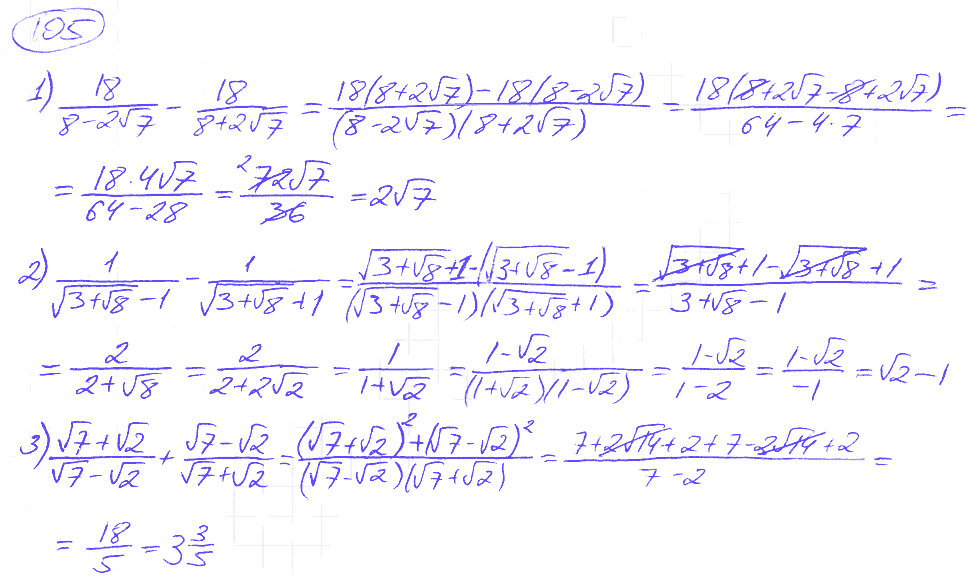 105
1) 18/(8-2√7) - 18/(8+2√7) = (18(8+2√7)-18(8-2√7))/((8-2√7)(8+2√7)) = (18(8+2√7-8+2√7))/(64-4·7) =
= (18·4√7)/(64-28) = ²72√7/36 = 2√7
2) 1/(√(3+√8)-1) - 1/(√(3+√8)+1) = (√(3+√8)+1-(√(3+√8)-1))/((√(3+√8)-1)(√(3+√8)+1)) = (√(3+√8)+1-√(3+√8)+1)/(3+√8-1) =
= 2/(2+√8) = 2/(2+2√2) = 1/(1+√2) = (1-√2)/((1+√2)(1-√2)) = (1-√2)/(1-2) = (1-√2)/(-1) = √2-1
3) (√7+√2)/(√7-√2) + (√7-√2)/(√7+√2) = ((√7+√2)²+(√7-√2)²)/((√7-√2)(√7+√2)) = (7+2√14+2+7-2√14+2)/(7-2) =
= 18/5 = 3 3/5